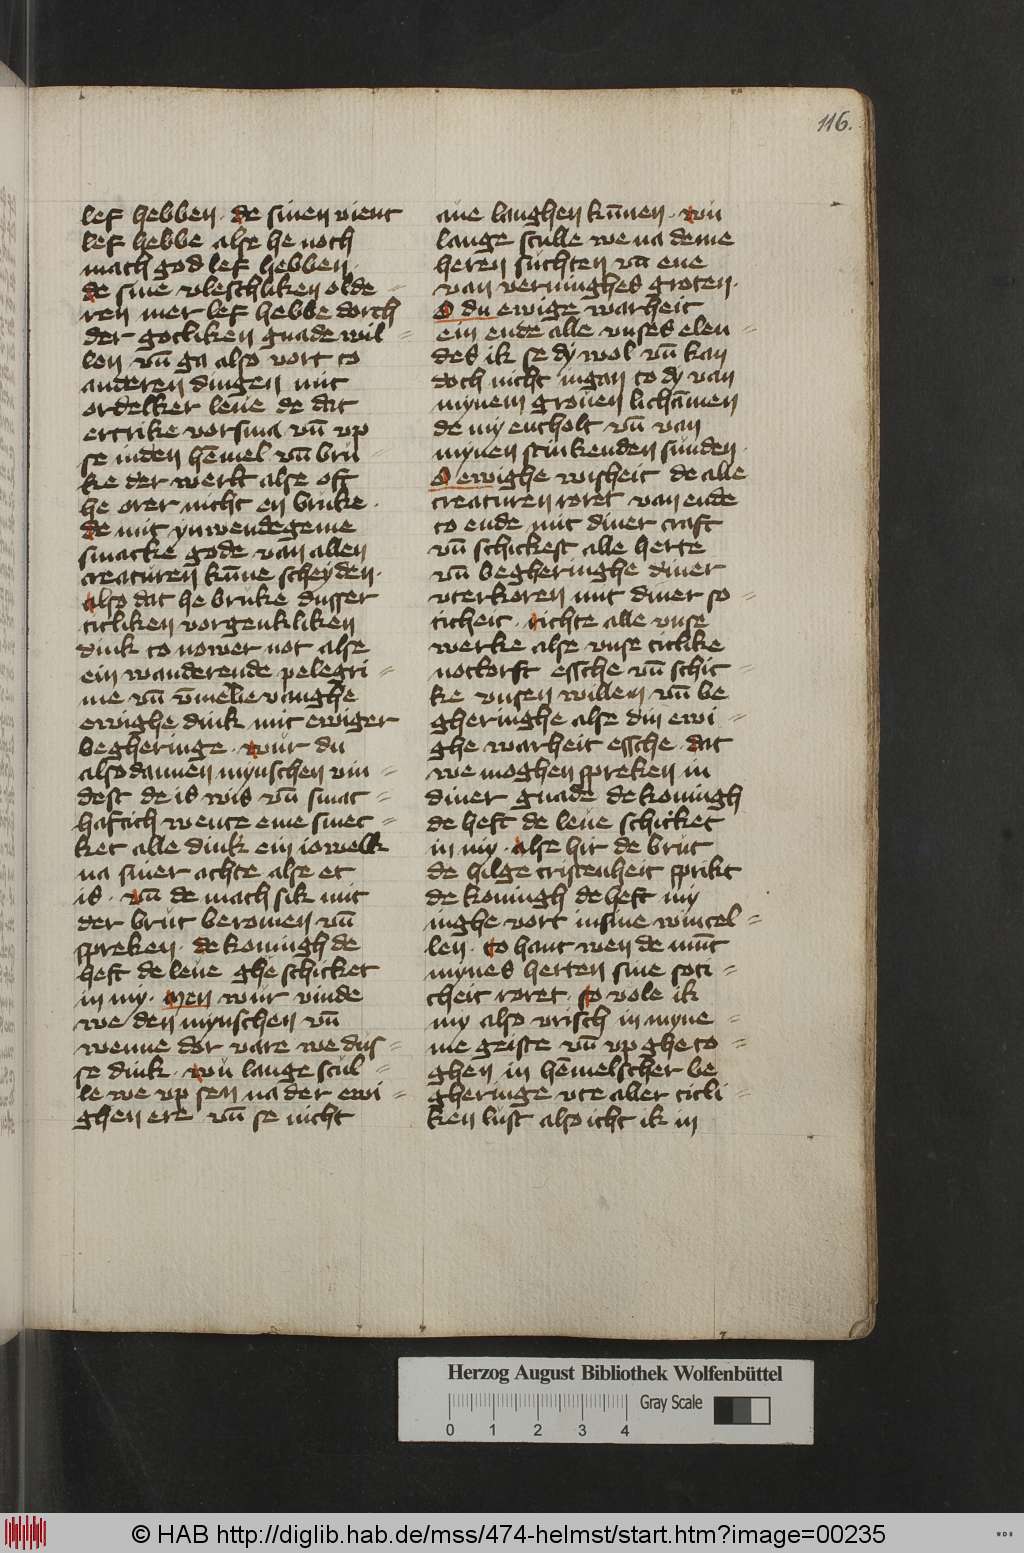 116.
lef hebben · de sinen vient
lef hebbe alse he noch
mach god lef hebben ·
de sine vleschliken olde =
ren mer lef hebbe dorch
der gotliken gnade wil =
len vn̄ ga also vort to
anderen dingen mit
ordelker leue de dat
ertrike vorsma vn̄ vp
se inden hēmel vn̄ bru =
ke der werlt alse oft
he orer nicht en bruke ·
de mit ynwendegeme
smacke gode van allen
creaturen kūne scheyden ·
also dat he bruke dusser
titliken vorgenkliken
dink to nower not alse
ein wanderende pelegri =
me vn̄ vmelie vanghe
ewighe dink mit ewiger
begheringe · wur du
also dannen mynschen vin =
dest de is wis vn̄ smac =
haftich wente eme smec =
ket alle dink ein iowelk
na siner achte alse et
is · vn̄ de mach sik mit
der brut beromen vn̄
spreken · de koningh de
heft de leue ghe schicket
in my · Men wur vinde
we den mynschen vn̄
wenne dor vare we dus =
se dink · wu lange scul =
le we vp sen na der ewi =
ghen ere vn̄ se nicht
ane langhen kūnen · wu
lange sculle we na deme
heren suchten vn̄ ene
van verninghes groten ·
O du ewige warheit
ein ende alle vnses elen =
des ik se dy wol vn̄ kan
doch nicht ingan to dy van
mynem grouen lichāmen
de my entholt vn̄ van
mynen stinkenden sunden ·
O ewighe wisheit de alle
creaturen roret van ende
to ende mit diner craft
vn̄ schickest alle herte
vn̄ begheringhe diner
vterkoren mit diner so =
ticheit · richte alle vnse
werke alse vnse titlike
notdorft essche vn̄ schic =
ke vnsen willen vn̄ be
gheringhe alse din ewi =
ghe warheit essche · dat
we moghen spreken in
diner gnade de koningh
de heft de leue schicket
in my · alse hir de brut
de hilge cristenheit sprikt
de koningh de heft my
inghe vort in sine wintel =
len · to hant wen de munt
mynes herten sine soti =
cheit roret · so vole ik
my also vrisch in myne =
me geiste vn̄ vp gheto =
ghen in hēmelscher be
gheringe vte aller titli =
ken lust also icht ik in
Herzog August Bibliothek Wolfenbüttel
Gray Scale
0 1 2 3 4
© HAB http://diglib.hab.de/mss/474-helmst/start.htm?image=00235
WDB